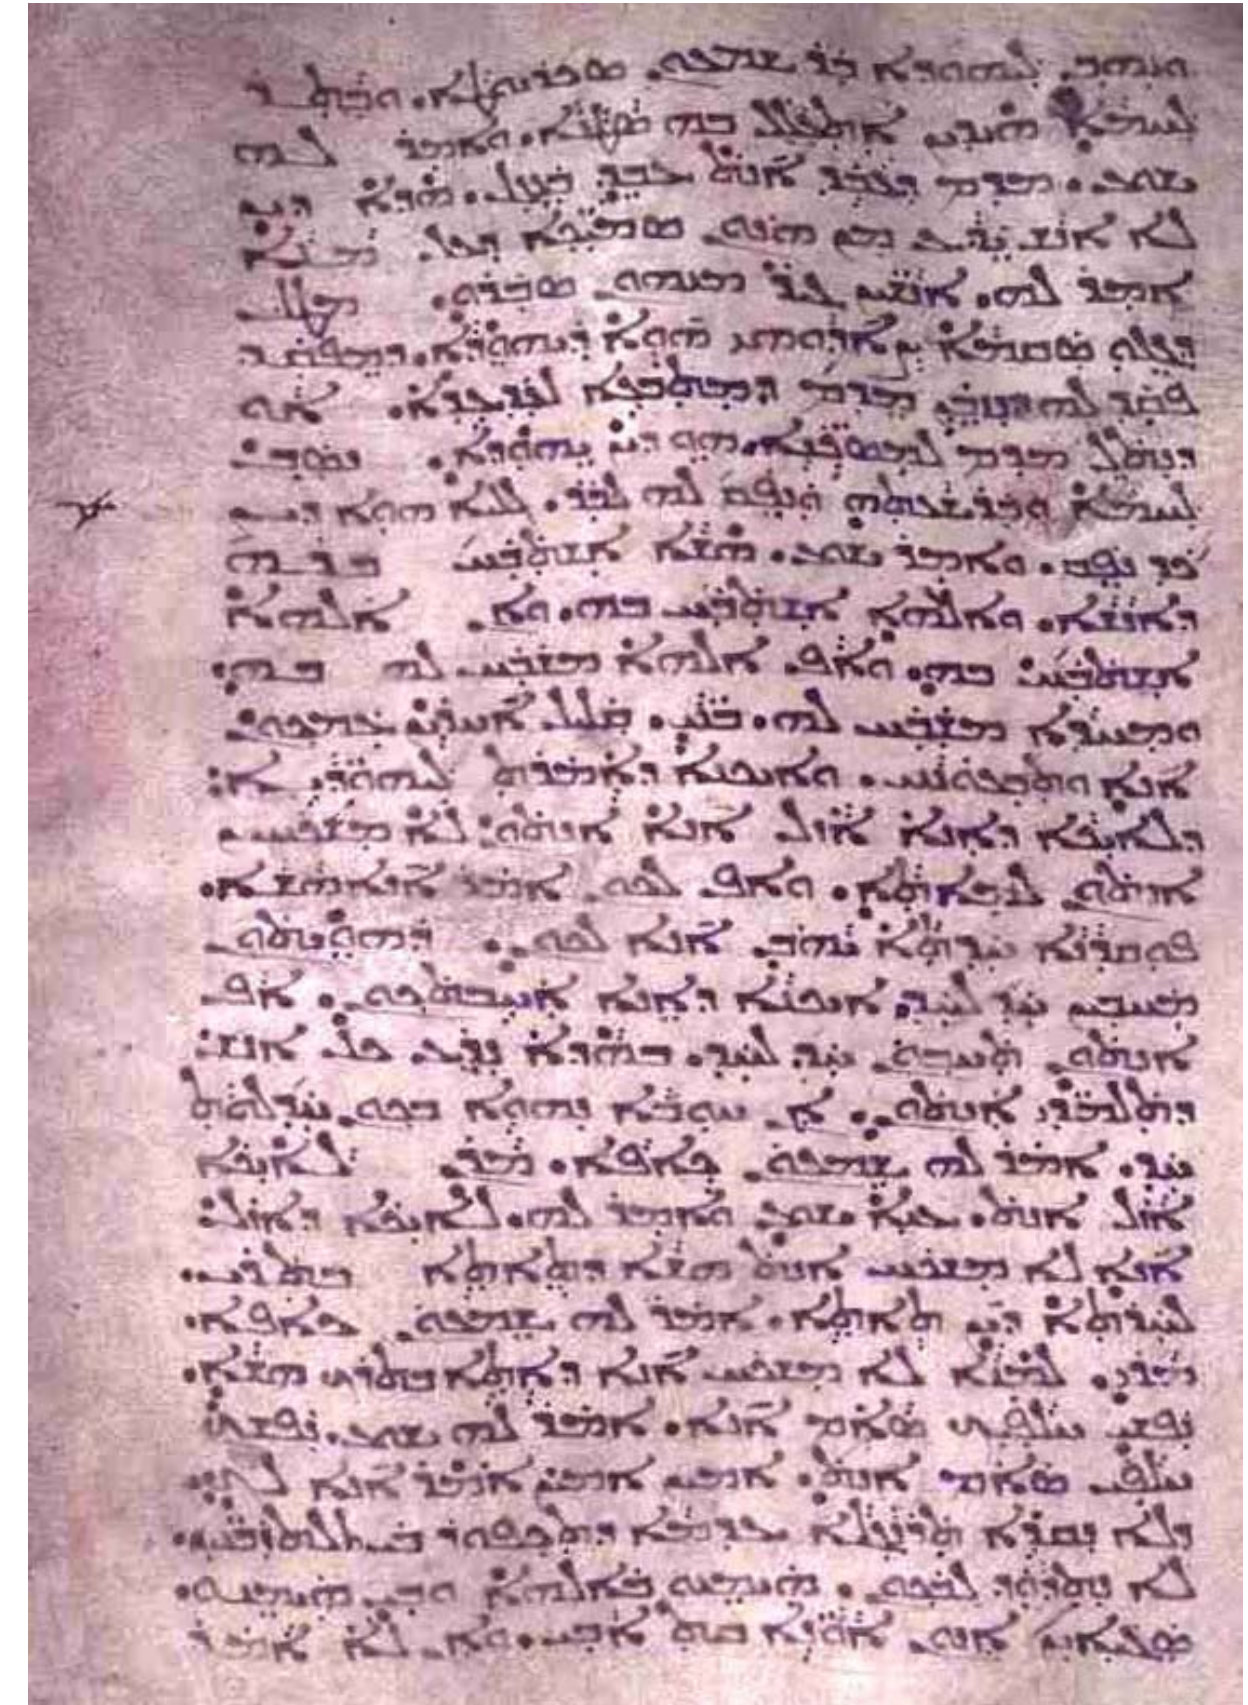 ܘܝܗܒ. ܠܝܗܘܕܐ ܒܪ ܫܡܥܘܢ ܣܟܪܝܘܛܐ. ܘܒܬܪ
ܠܚܡܐ ܗܝܕܝܢ ܐܬܥܠܠ ܒܗ ܣܛܢܐ. ܘܐܡܪ ܠܗ
ܝܫܘܥ. ܡܕܡ ܕܥܒܕ ܐܢܬ ܥܒܕ ܒܥܓܠ. ܗܕܐ ܕܝܢ
ܠܐ ܐܢܫ ܝܕܥ ܡܢ ܗܢܘܢ ܣܡܝܟܐ ܕܥܠ ܡܢܐ
ܐܡܪ ܠܗ. ܐܢܫܝܢ ܓܝܪ ܡܢܗܘܢ ܣܒܪܘ. ܡܛܠ
ܨܐܕܘܗܝ ܗܘܐ ܕܝܗܘܕܐ. ܕܡܦܩܕ
ܦܩܕ ܠܗ ܕܢܙܒܢ ܡܕܡ ܕܡܬܒܥܐ ܠܥܕܥܕܐ. ܐܘ
ܕܢܬܠ ܡܕܡ ܠܡܣܟܢܐ. ܗܘ ܕܝܢ ܝܗܘܕܐ. ܢܣܒ
ܠܚܡܐ ܘܒܪܫܥܬܗ ܘܢܦܩ ܠܗ ܠܒܪ. ܠܠܝܐ ܗܘܐ ܕܝܢ
ܟܕ ܢܦܩ. ܘܐܡܪ ܝܫܘܥ. ܗܫܐ ܐܫܬܒܚ ܒܪܗ
ܕܐܢܫܐ. ܘܐܠܗܐ ܐܫܬܒܚ ܒܗ. ܘܐܢ ܐܠܗܐ
ܐܫܬܒܚ ܒܗ. ܘܐܦ ܐܠܗܐ ܡܫܒܚ ܠܗ ܒܗ.
ܘܡܚܕܐ ܡܫܒܚ ܠܗ. ܒܢܝ. ܩܠܝܠ ܐܚܪܝܢ ܥܡܟܘܢ
ܐܢܐ ܘܬܒܥܘܢܢܝ. ܘܐܝܟܢܐ ܕܐܡܪܬ ܠܝܗܘܕܝܐ
ܕܠܐܝܟܐ ܕܐܢܐ ܐܙܠ ܐܢܐ ܐܢܬܘܢ ܠܐ ܡܫܟܚܝܢ
ܐܢܬܘܢ ܠܡܐܬܐ. ܘܐܦ ܠܟܘܢ ܐܡܪ ܐܢܐ ܗܫܐ.
ܦܘܩܕܢܐ ܚܕܬܐ ܝܗܒ ܐܢܐ ܠܟܘܢ. ܕܗܘܝܬܘܢ
ܡܚܒܝܢ ܚܕ ܠܚܕ. ܐܝܟܢܐ ܕܐܢܐ ܐܚܒܬܟܘܢ. ܐܦ
ܐܢܬܘܢ ܬܚܒܘܢ ܚܕ ܠܚܕ. ܒܗܕܐ ܢܕܥ ܟܠ ܐܢܫ
ܕܬܠܡܝܕܝ ܐܢܬܘܢ. ܐܢ ܚܘܒܐ ܢܗܘܐ ܒܟܘܢ ܚܕ ܠܘܬ
ܚܕ. ܐܡܪ ܠܗ ܫܡܥܘܢ ܟܐܦܐ. ܡܪܢ ܠܐܝܟܐ
ܐܙܠ ܐܢܬ. ܥܢܐ ܝܫܘܥ ܘܐܡܪ ܠܗ. ܠܐܝܟܐ ܕܐܙܠ
ܐܢܐ ܠܐ ܡܫܟܚ ܐܢܬ ܗܫܐ ܕܬܐܬܐ ܒܬܪܝ.
ܠܚܪܬܐ ܕܝܢ ܬܐܬܐ. ܐܡܪ ܠܗ ܫܡܥܘܢ ܟܐܦܐ.
ܡܪܝ. ܠܡܢܐ ܠܐ ܡܫܟܚ ܐܢܐ ܕܐܬܐ ܒܬܪܟ ܗܫܐ.
ܢܦܫܝ ܚܠܦܝܟ ܣܐܡ ܐܢܐ. ܐܡܪ ܠܗ ܝܫܘܥ. ܢܦܫܟ
ܚܠܦܝ ܣܐܡ ܐܢܬ. ܐܡܝܢ ܐܡܝܢ ܐܡܪ ܐܢܐ ܠܟ
ܕܠܐ ܢܩܪܐ ܬܪܢܓܠܐ ܥܕܡܐ ܕܬܟܦܘܪ ܒܝ ܬܠܬ ܙܒܢܝܢ.
ܠܐ ܢܬܕܘܕ ܠܒܟܘܢ. ܗܝܡܢܘ ܒܐܠܗܐ ܘܒܝ ܗܝܡܢܘ.
ܣܓܝܐܝܢ ܐܢܘܢ ܐܘܢܐ ܒܝܬ ܐܒܝ. ܘܐܢ ܠܐ ܐܡܪ